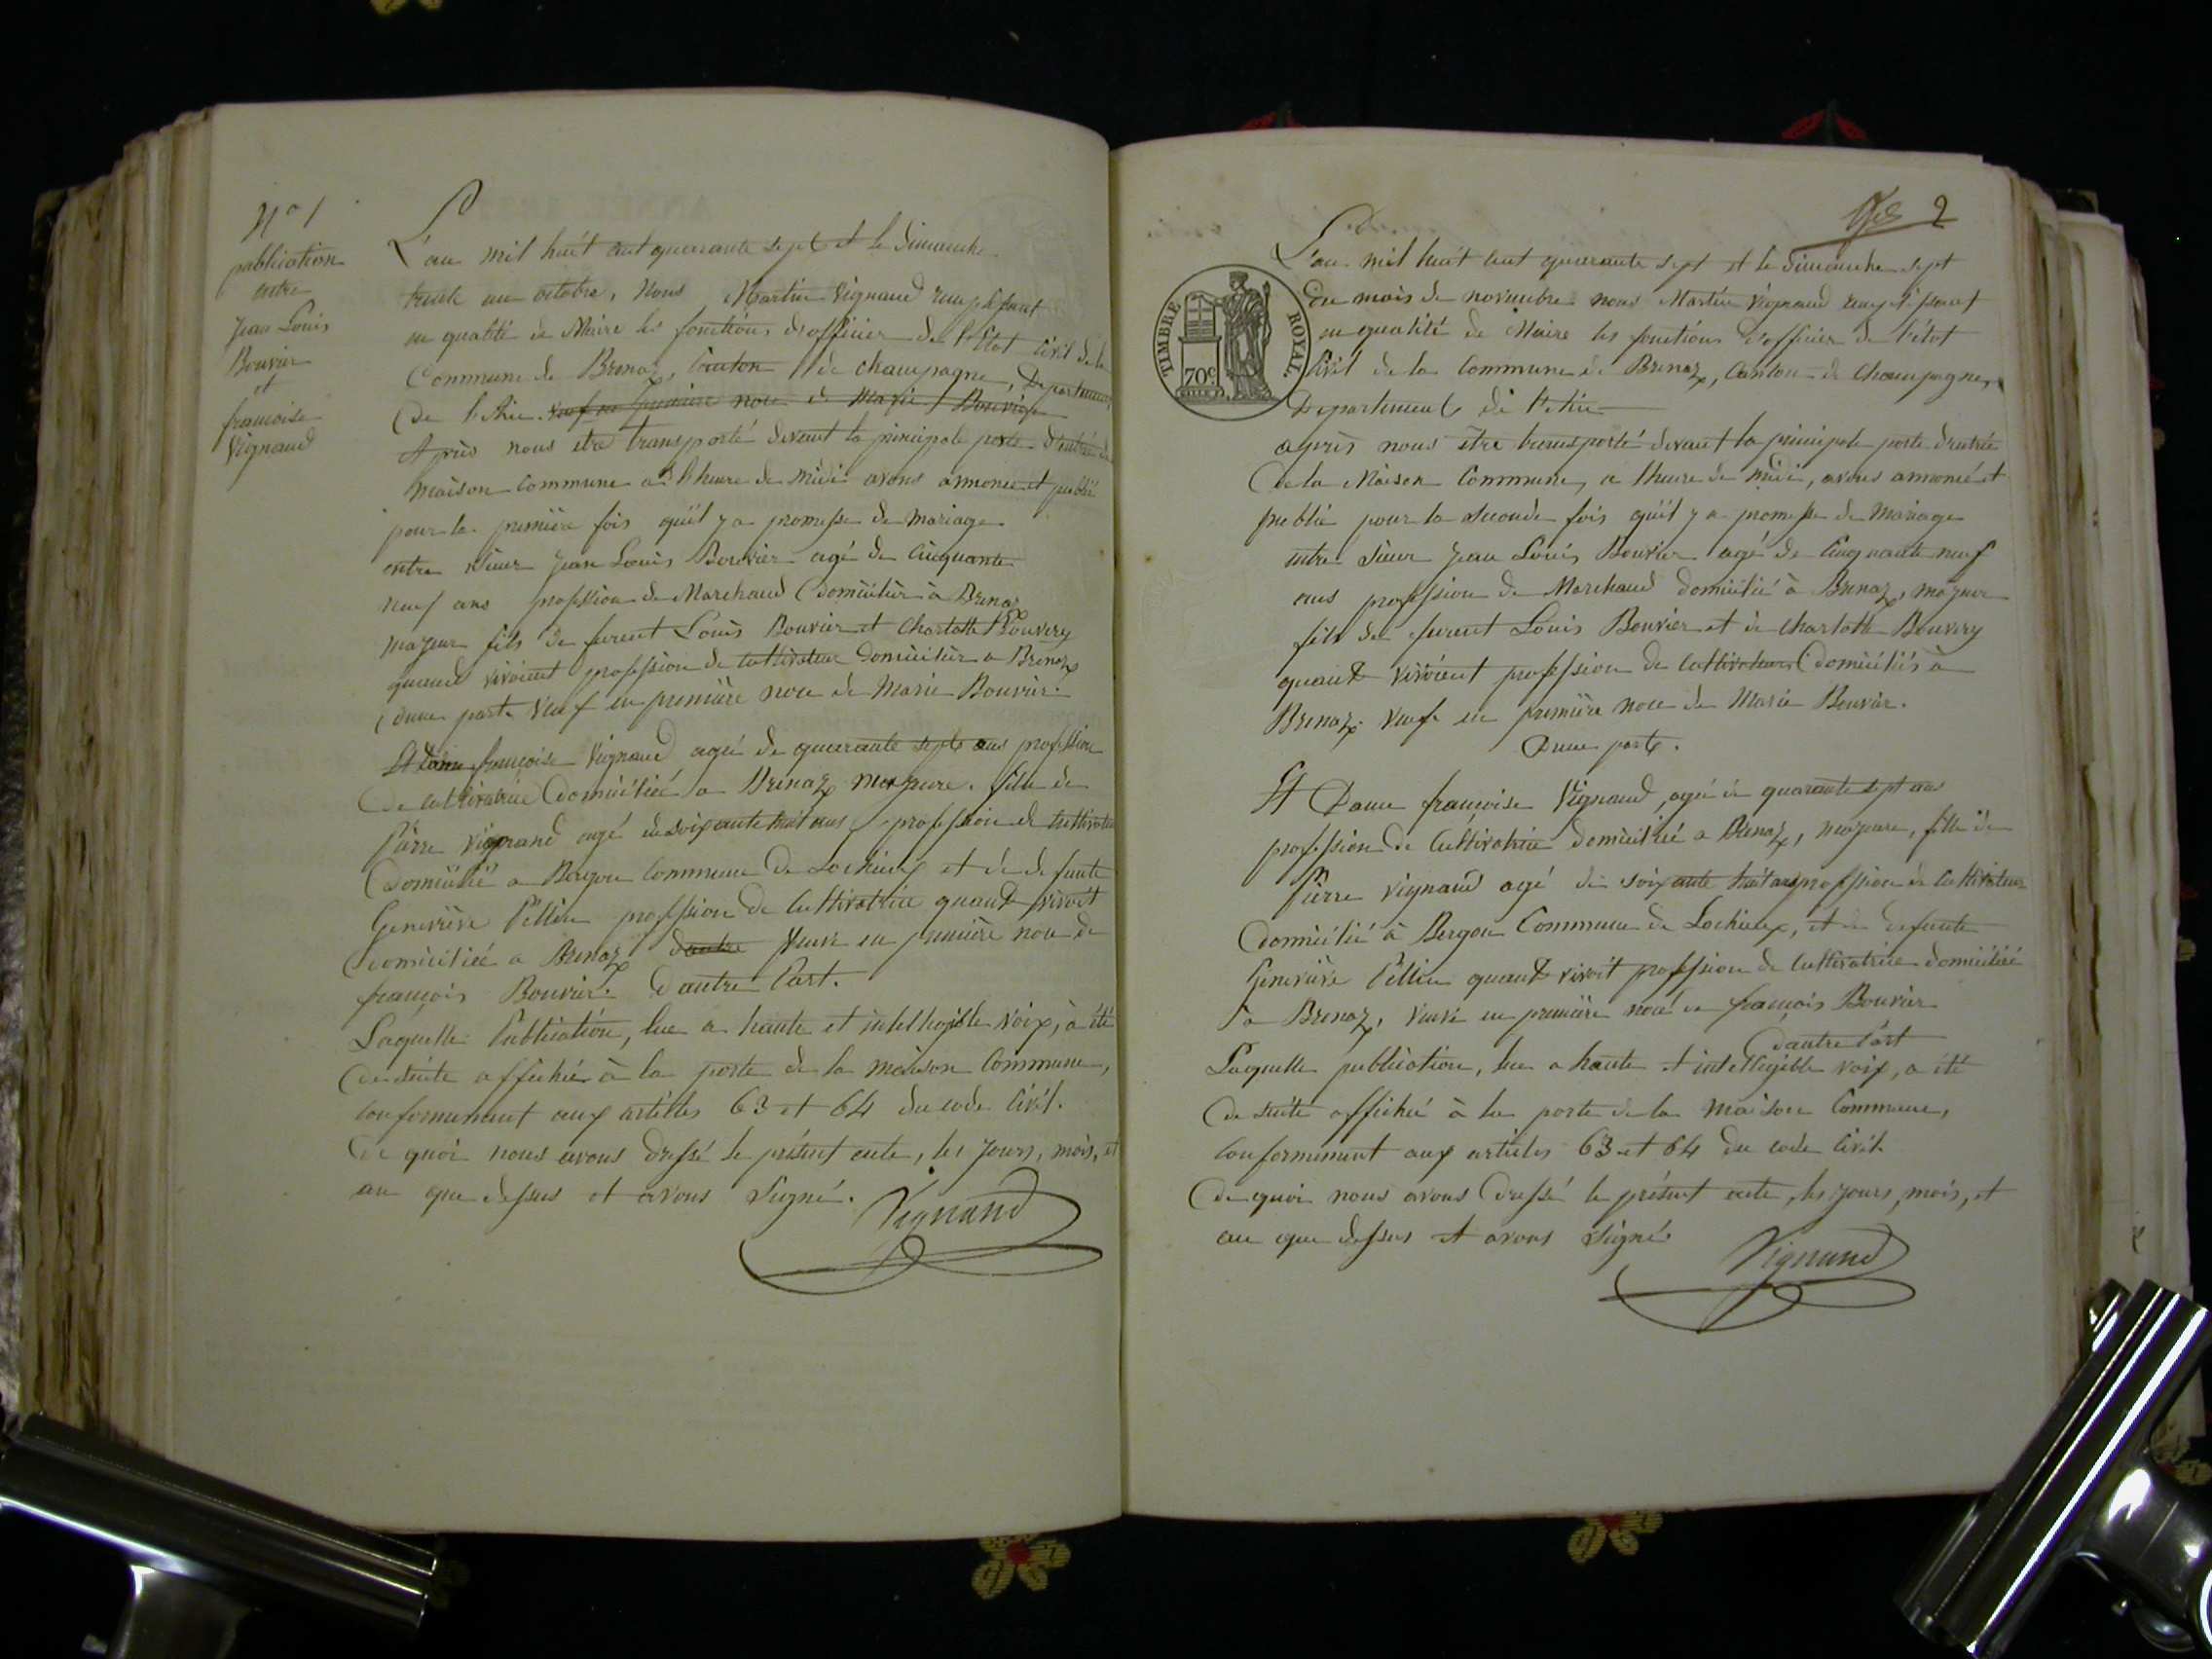 N° 1
publication
entre
Jean Louis
Bouvier
et
françoise
Vignand
L'an mil huit cent quarante sept et le dimanche
trente un octobre, Nous Martin Vignand remplissant
en qualité de Maire les fonctions d'officier de l'Etat Civil de la
Commune de Brenaz, Canton de champagne, Departement
De l'Ain. veuf en premiere noce de Marie Bouvier
Après nous etre transporté devant la principale porte d'entrée de
maison commune a l'heure de midi avons annoncé et publié
pour la première fois qu'il y a promesse de mariage
entre Sieur Jean Louis Bouvier agé de Cinquante
neuf ans profession de Marchand Domicilier à Brenaz
majeur fils de furent Louis Bouvier et Charlotte Bouvery
quand vivoient profession de cultivateur Domicilier a Brenaz
dune part. Veuf en première noce de Marie Bouvier.
Et Dame françoise Vignand agée de quarante sept ans profession
De cultivatrice Domiciliée a Brenaz majeure. fille de
Pierre Vignand agé de soixante huit ans profession de Cultivateur
Domicilié a Bergon Commune de Lochieux et de defunte
Genevieve Pillin profession de Cultivatrice quand vivoit
Domiciliée a Brenaz dautre Veuve en première noce de
françois Bouvier. Dautre Part.
Laquelle Publication, lue a haute et intelligible voix, à été
de suite affichée à la porte de la maison Commune,
conformement aux articles 63 et 64 du code Civil.
De quoi nous avons dressé le présent acte, les jours, mois, et
an que dessus et avons Signé.
Vignand
2
L'an mil huit cent quarante sept et le Dimanche sept
du mois de novembre nous Martin Vignand remplissant
en qualité de Maire les fonctions d'officier de l'étot
Civil de la Commune de Brenaz, Canton de Champagne,
Departement de l'Ain
TIMBRE ROYAL
70c
après nous être transporté devant la principale porte d'entrée
De la Maison Commune, a l'heure de midi, avons annoncé et
publié pour la seconde fois qu'il y a promesse de Mariage
entre Sieur Jean Louis Bouvier agé de Cinquante neuf
ans profession de Marchand domicilié à Brenaz, majeur
fils de furent Louis Bouvier et de Charlotte Bouvery
quand vivoient profession de Cultivateurs Domiciliés à
Brenaz. Veuf en première noce de Marie Bouvier.
Dune part.
Et Dame françoise Vignand, agée de quarante sept ans
profession De Cultivatrice Domiciliée a Brenaz, majeure, fille de
Pierre Vignand agé de soixante huit ans profession de Cultivateur
Domicilié à Bergon Commune de Lochieux, et de Defunte
Genevière Pillin quand vivoit profession de Cultivatrice domiciliée
a Brenaz, veuve en première noce de françois Bouvier
Dautre Part
Laquelle publication, lue a haute et intelligible voix, a été
De suite affichée à la porte de la Maison Commune,
Conformement aux articles 63 et 64 du code Civil.
De quoi nous avons Dressé le présent acte, les jours, mois, et
an que dessus et avons Signé.
Vignand